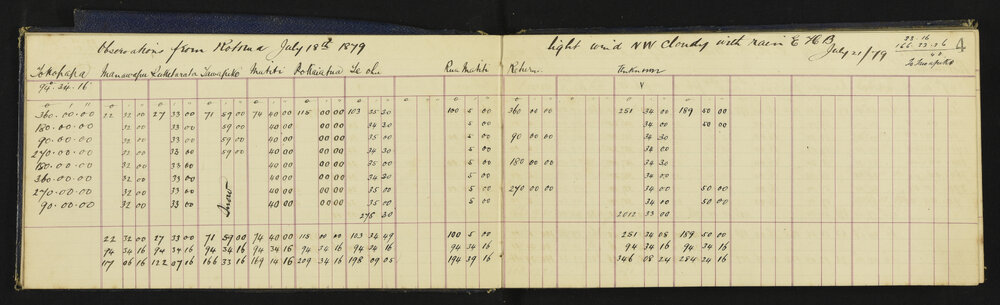 Observations from Rotorua July 18th 1879
light wind NW Cloudy with rain E H B
July 21/79
23.16
166.33.16
4
To Tawapuko
Tokopapa Manawapu Puketarata Tawapuko Matiti Potakatawa Te ohu Rua Matiti Return Unknown
94.34.16
360.00.00 22 32 00 27 33 00 71 59 00 74 40 00 115 00 00 103 35 30 100 5 00 360 00 00 251 34 00 189 50 00
180.00.00 32 00 33 00 59 00 40 00 00 00 34 30 5 00 34 00 50 00
90.00.00 32 00 33 00 59 00 40 00 00 00 35 00 5 00 90 00 00 34 30
270.00.00 32 00 33 00 59 00 40 00 00 00 34 30 5 00 34 00
180.00.00 32 00 33 00 40 00 00 00 35 00 5 00 180 00 00 34 30
360.00.00 32 00 33 00 40 00 00 00 34 30 5 00 34 00
270.00.00 32 00 33 00 Snow 40 00 00 00 35 00 5 00 270 00 00 34 00 50 00
90.00.00 32 00 33 00 40 00 00 00 35 00 5 00 34 00 50 00
275 30 2012 33 00
22 32 00 27 33 00 71 59 00 74 40 00 115 00 00 103 34 49 100 5 00 251 34 08 189 50 00
94 34 16 94 34 16 94 34 16 94 34 16 94 34 16 94 34 16 94 34 16 94 34 16 94 34 16
117 06 16 122 07 16 166 33 16 169 14 16 209 34 16 198 09 05 194 39 16 346 08 24 284 24 16